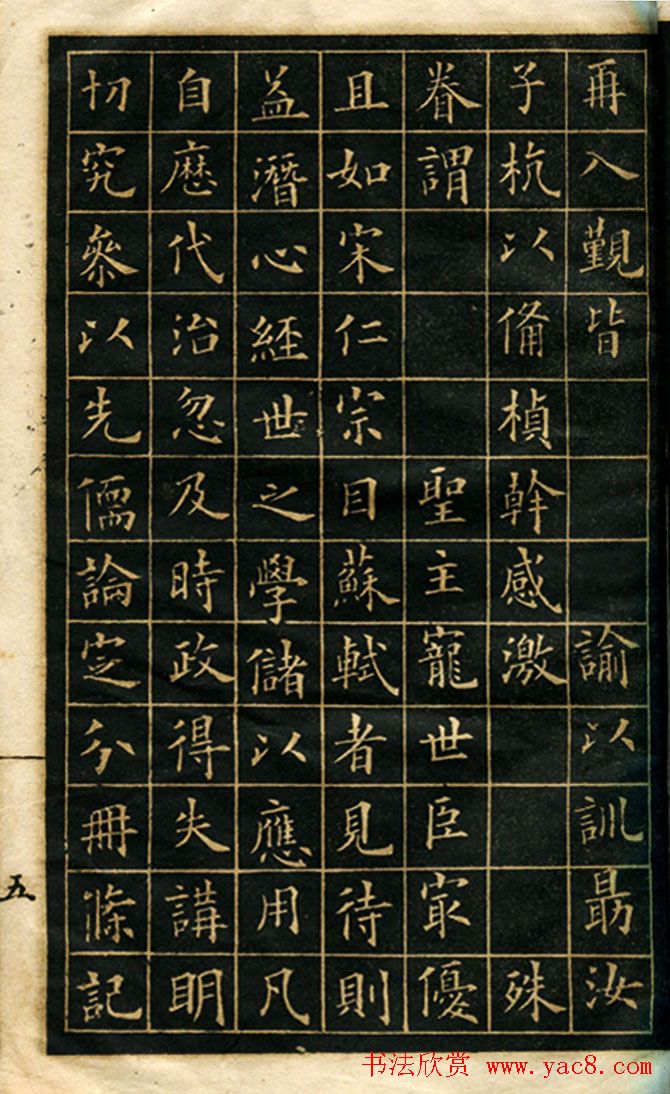 再入覲皆 諭以訓勗汝
子杭以備楨幹感激 殊
眷謂 聖主寵世臣冣優
且如宋仁宗目蘇軾者見待則
益潛心經世之學儲以應用凡
自歷代治忽及時政得失講明
切究叅以先儒論定分冊條記
五
书法欣赏 www.yac8.com